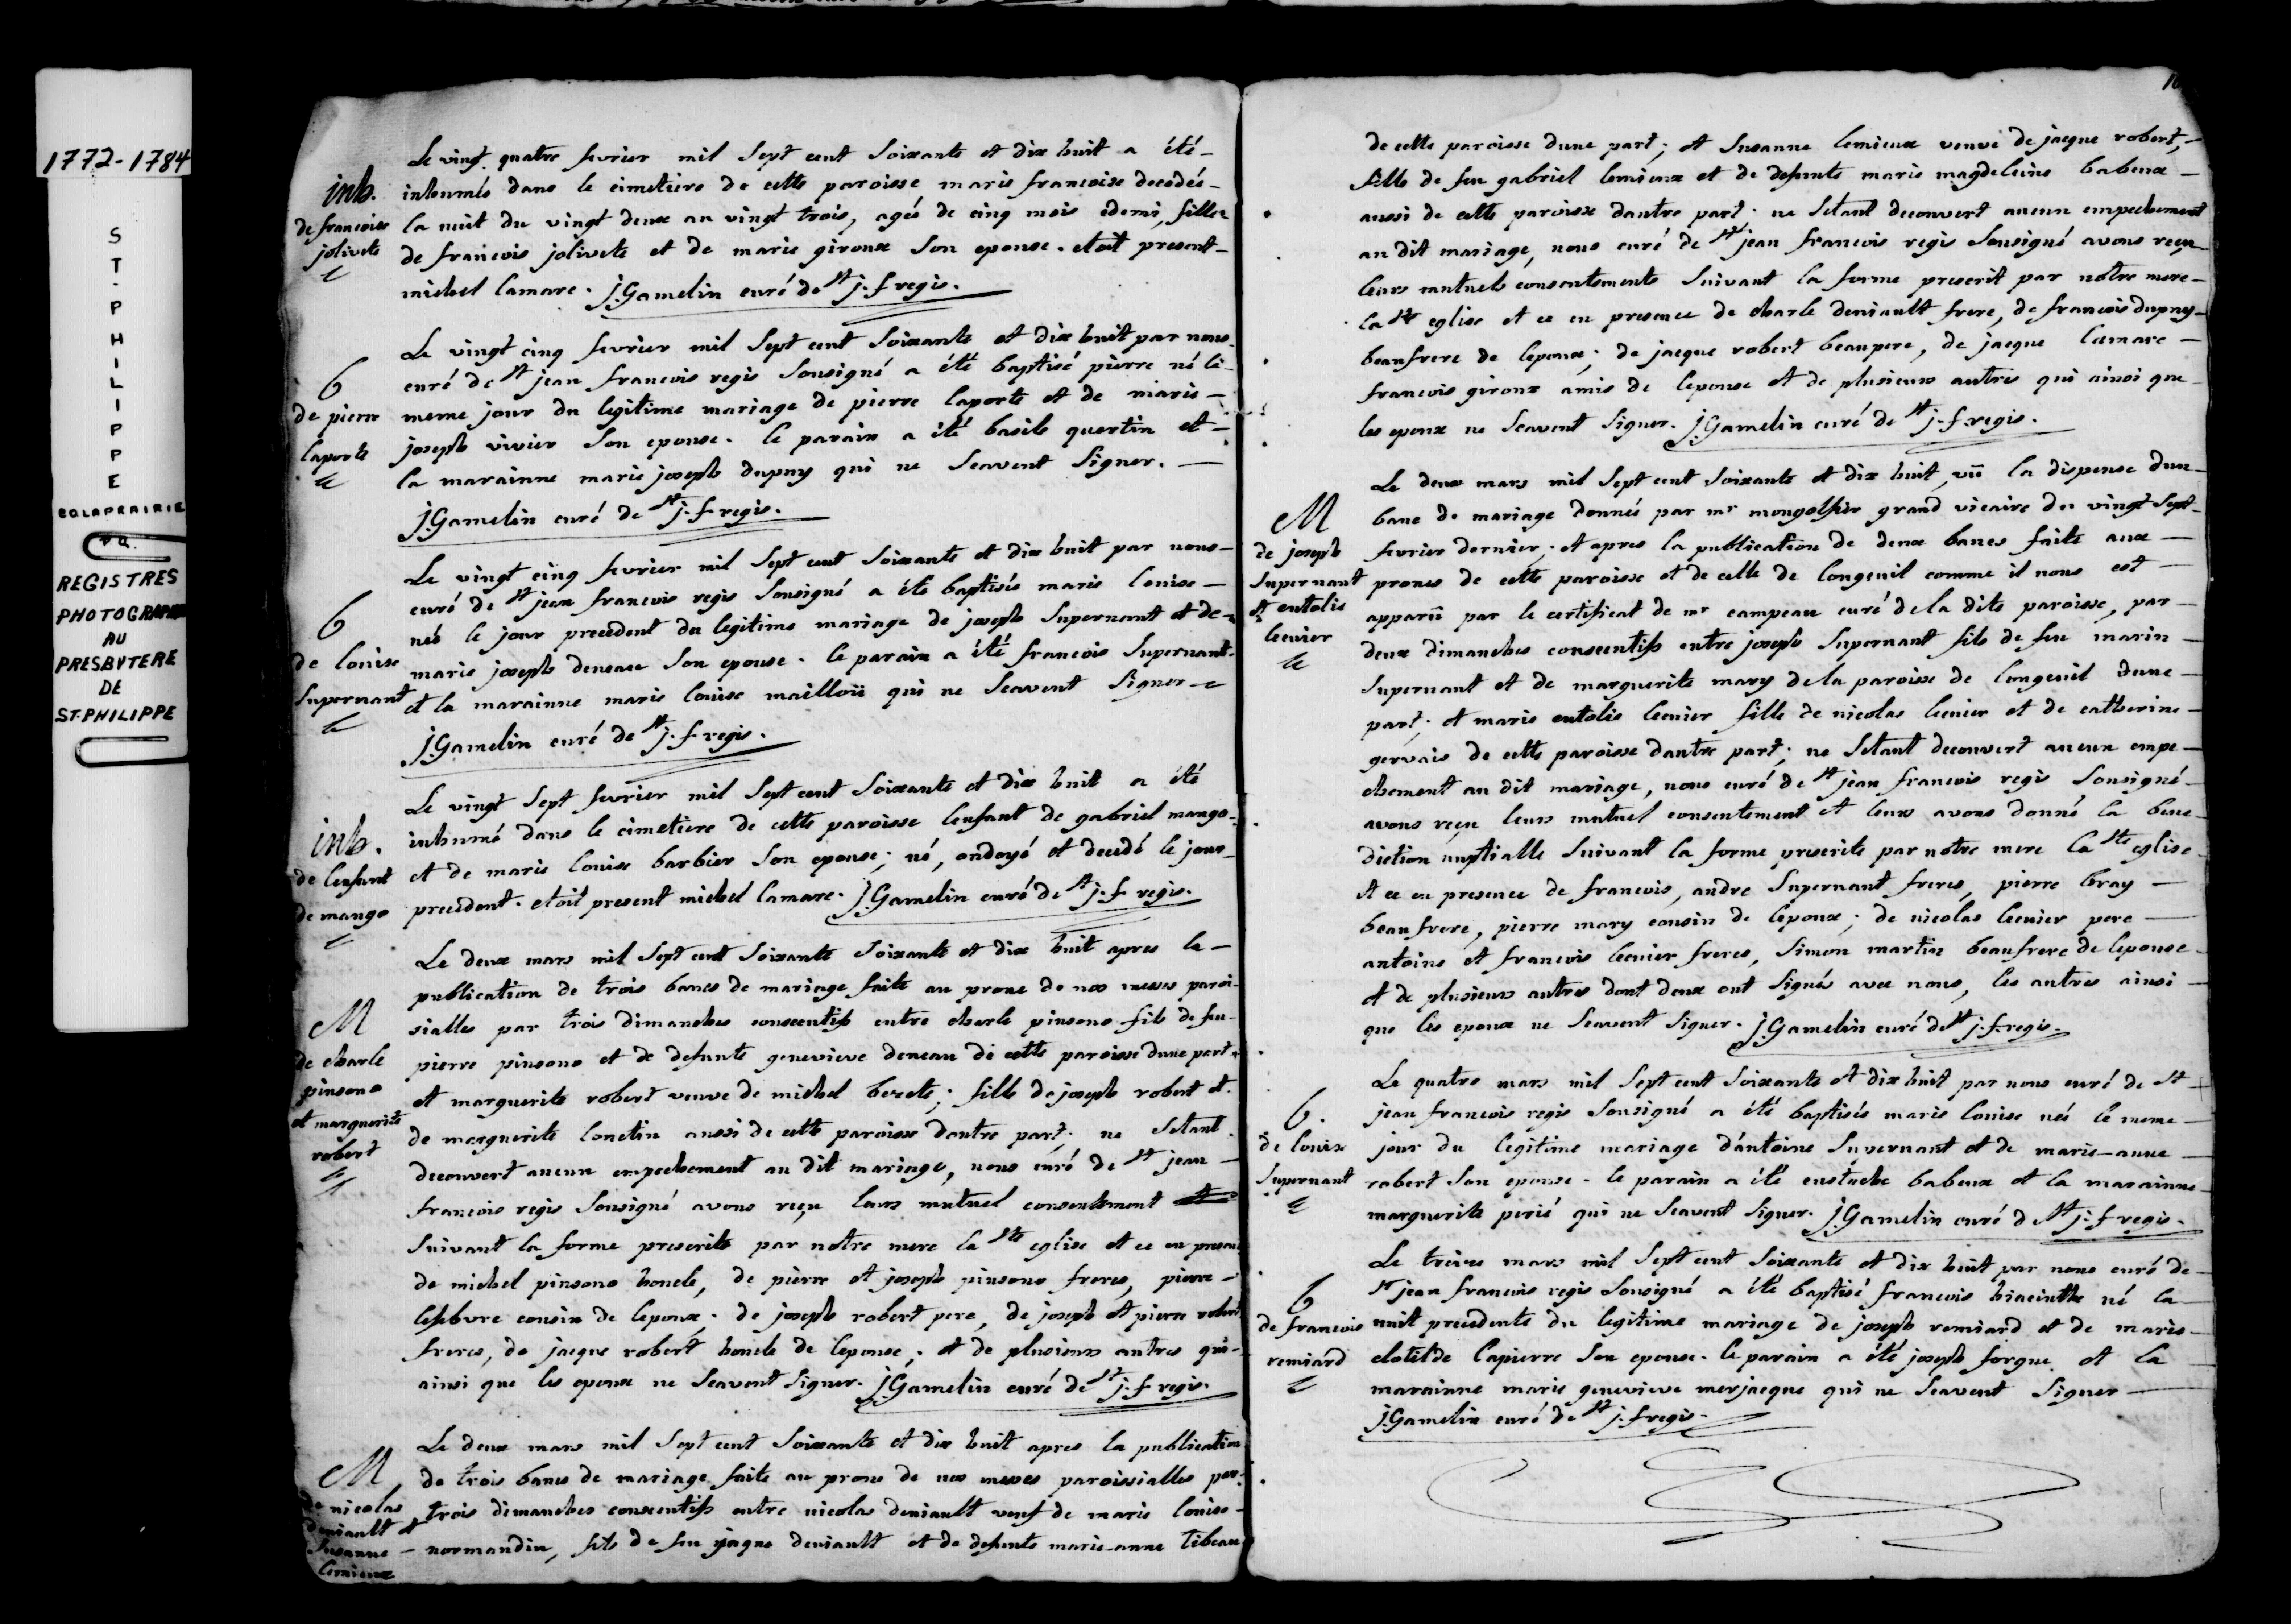 1772-1784
ST. PHILIPPE
CO LAPRAIRIE
P.Q.
REGISTRES
PHOTOGRAPHIÉS
AU
PRESBYTERE
DE
ST-PHILIPPE
inh.
de francoise
jolivete
Le vingt quatre fevrier mil sept cent soixante et dix huit a été
inhumée dans le cimetiere de cette paroisse marie francoise decedée
la nuit du vingt deux au vingt trois, agée de cinq mois edemi, fille
de francois jolivete et de marie giroux son epouse. etoit present
michel lamare. j. Gamelin curé de st j. f regis.
b
de pierre
laporte
Le vingt cinq fevrier mil sept cent soixante et dix huit par nous
curé de st jean francois regis sousigné a été baptisé pierre né le
meme jour du legitime mariage de pierre laporte et de marie
joseph vivier son epouse. le parain a été basile quertin et
la marainne marie joseph dupuy qui ne scavent signer.
j. Gamelin curé de st j. f regis.
b
de louise
Supernant
Le vingt cinq fevrier mil sept cent soixante et dix huit par nous
curé de st jean francois regis sousigné a été baptisée marie louise
née le jour precedent du legitime mariage de joseph Supernant et de
marie joseph deneau son epouse. le parain a été francois Supernant
et la marainne marie louise mailloü qui ne scavent signer
j. Gamelin curé de st j. f regis.
inh.
de lenfant
de mango
Le vingt sept fevrier mil sept cent soixante et dix huit a été
inhumé dans le cimetiere de cette paroisse lenfant de gabriel mango
et de marie louise barbier son epouse; né, ondoyé et decedé le jour
precedent. etoit present michel lamare. j. Gamelin curé de st j. f regis.
M
de charle
pinsono
et marguerite
robert
Le deux mars mil sept cent soixante soixante et dix huit apres la
publication de trois bancs de mariage faite au prone de nos messes paroi-
sialles par trois dimanches consecutifs entre charle pinsono fils de feu
pierre pinsono et de defunte genevieve deneau de cette paroisse dune part
et marguerite robert veuve de michel berete; fille de joseph robert et
de marguerite lonctin aussi de cette paroisse dautre part; ne setant
decouvert aucun empechement au dit mariage, nous curé de st jean
francois regis sousigné avons reçu leurs mutuel consentement
suivant la forme prescrite par notre mere la ste eglise et ce en presence
de michel pinsono honcle, de pierre et joseph pinsono freres, pierre
lefebvre cousin de lepoux; de joseph robert pere, de joseph et pierre robert
freres, de jacque robert honcle de lepouse; et de plusieurs autres qui
ainsi que les epoux ne scavent signer. j. Gamelin curé de st j. f regis.
M
de nicolas
deniault et
Susanne
lemieux
Le deux mars mil sept cent soixante et dix huit apres la publication
de trois bancs de mariage faite au prone de nos messes paroissialles par
trois dimanches consecutifs entre nicolas deniault veuf de marie louise
normandin, fils de feu jaque deniault et de defunte marie-anne tibeau
de cette paroisse dune part; et Susanne lemieux veuve de jacque robert,
fille de feu gabriel lemieux et de defunte marie magdeleine babeux
aussi de cette paroisse dautre part; ne setant decouvert aucun empechement
au dit mariage, nous curé de st jean francois regis sousigné avons reçu
leurs mutuels consentements suivant la forme prescrit par notre mere
la ste eglise et ce en presence de charle deniault frere, de francois dupuy
beaufrere de lepoux; de jacque robert beaupere, de jacque lamare
francois giroux amis de lepouse et de plusieurs autres qui ainsi que
les epoux ne scavent signer. j. Gamelin curé de st j. f. regis.
M
de joseph
Supernant
et entolie
lecuier
Le deux mars mil sept cent soixante et dix huit, vü la dispense dun
banc de mariage donnée par mr mongolfier grand vicaire du vingt sept
fevrier dernier; et apres la publication de deux bancs faite aux
prones de cette paroisse et de celle de longeuil comme il nous est
apparü par le certificat de mr campeau curé de la dite paroisse, par
deux dimanches consecutifs entre joseph Supernant fils de feu marin
Supernant et de marguerite mary de la paroisse de longeuil dune
part; et marie entolie lecuier fille de nicolas lecuier et de catherine
gervais de cette paroisse dautre part; ne setant decouvert aucun empe-
chement au dit mariage, nous curé de st jean francois regis sousigné
avons reçu leurs mutuel consentement et leurs avons donné la bene-
diction nuptialle suivant la forme prescrite par notre mere la ste eglise
et ce en presence de francois, andre Supernant freres, pierre bray
beaufrere, pierre mary cousin de lepoux; de nicolas lecuier pere
antoine et francois lecuier freres, Simon martin beaufrere de lepouse
et de plusieurs autres dont deux ont signés avec nous, les autres ainsi
que les epoux ne scavent signer. j. Gamelin curé de st j. f. regis.
b.
de louise
Supernant
Le quatre mars mil sept cent soixante et dix huit par nous curé de st
jean francois regis sousigné a été baptisée marie louise née le meme
jour du legitime mariage dantoine Supernant et de marie-anne
robert son epouse. le parain a été eustache babeux et la marainne
marguerite perié qui ne scavent signer. j. Gamelin curé d st j. f regis.
b
de francois
remiard
Le treize mars mil sept cent soixante et dix huit par nous curé de
st jean francois regis sousigné a été baptisé francois hiacinthe né la
nuit precedente du legitime mariage de joseph remiard et de marie
clotilde lapierre son epouse. le parain a été joseph forgue et la
marainne marie genevieve merjacque qui ne scavent signer
j. Gamelin curé de st j. f regis.